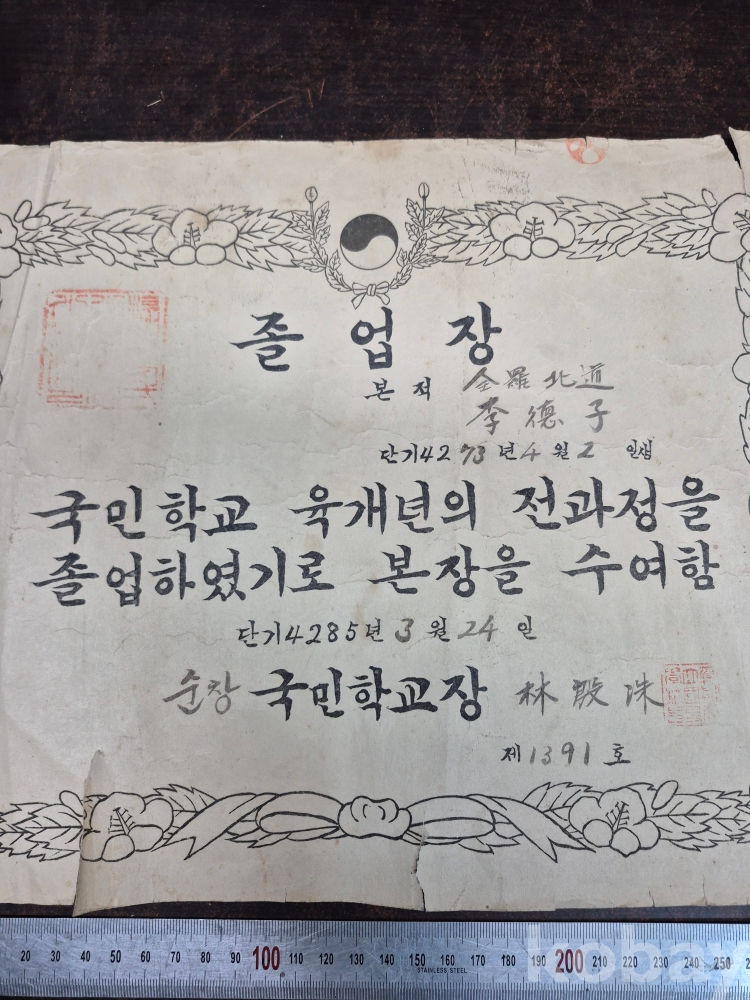 졸업장
본적 全羅北道
李德子
단기4273년4월2일생
국민학교 육개년의 전과정을
졸업하였기로 본장을 수여함
단기4285년3월24일
순창 국민학교장 林殷洙
제1391호
20 30 40 50 60 70 80 90 100 110 120 130 140 150 160 170 180 190 200 210 220 230 240 250
STAINLESS STEEL
koba